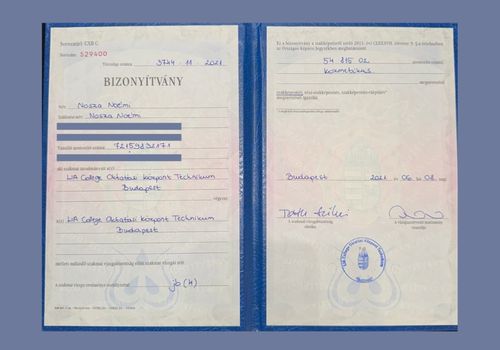 Sorszámjel: EXB C
Sorszám: 529400
Törzslap száma: 3744-11-2021
BIZONYÍTVÁNY
Név: Nosza Noémi
Születési név: Nosza Noémi
Tanulói azonosító száma: 72159832171
aki szakmai tanulmányait a(z)
LIA College Oktatási Központ Technikum
Budapest
végezte
a(z) LIA College Oktatási Központ Technikum
Budapest
mellett működő szakmai vizsgabizottság előtt szakmai vizsgát tett.
A szakmai vizsga eredménye osztályzattal: jó (4)
Ez a bizonyítvány a szakképzésről szóló 2011. évi CLXXXVII. törvény
az Országos Képzési Jegyzékben meghatározott
54 815 02 azonosító számú
kozmetikus megnevezésű
szakképesítés, rész-szakképesítés, szakképesítés-ráépülés*
megszerzését igazolja.
Budapest 2021 év 06 hó 08. nap
A szakmai vizsgabizottság
elnöke
A vizsgaszervező intézmény
vezetője